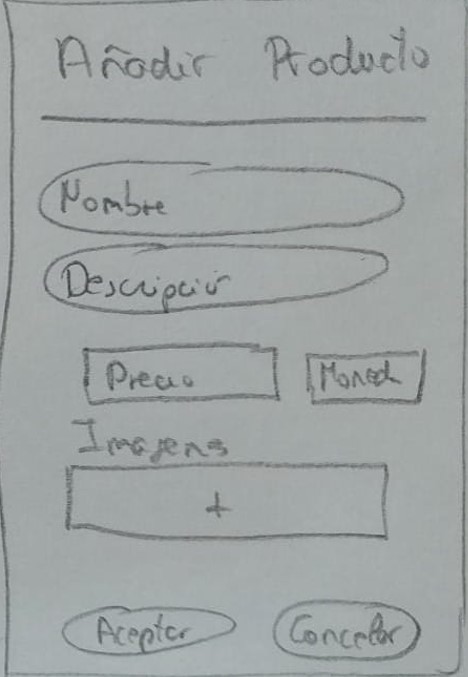 Añadir Producto
Nombre
Descripción
Precio Moneda
Imagenes
+
Aceptar Cancelar